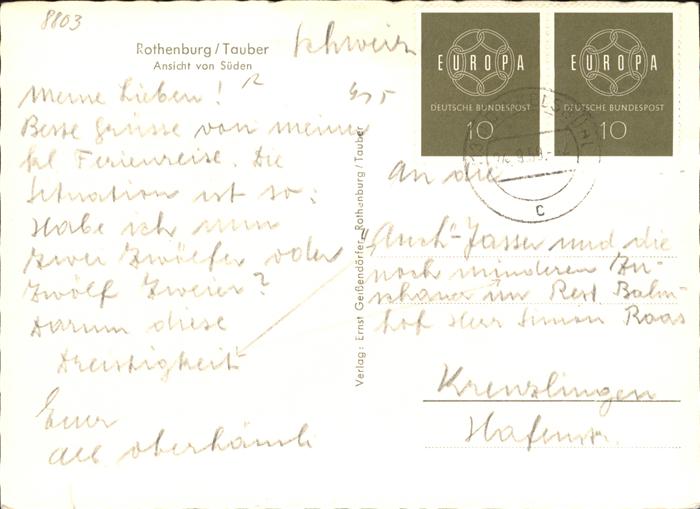 8803
Rothenburg / Tauber
Ansicht von Süden
Schweiz
Meine Lieben!
Beste Grüsse von meiner
kl Ferienreise. Die
Situation ist so:
Habe ich nun
zwei Zwölfer oder
Zwölf Zweier?
Darum diese
Dreistigkeit
Euer
EUROPA
DEUTSCHE BUNDESPOST
10
EUROPA
DEUTSCHE BUNDESPOST
10
C
An die
"Auch"-Jasser und die
noch minderen Zu-
schauer im Rest Bahn-
hof Herr Simon Raas
Kreuzlingen
Hafenstr.
Verlag: Ernst Geißendörfer, Rothenburg / Tauber